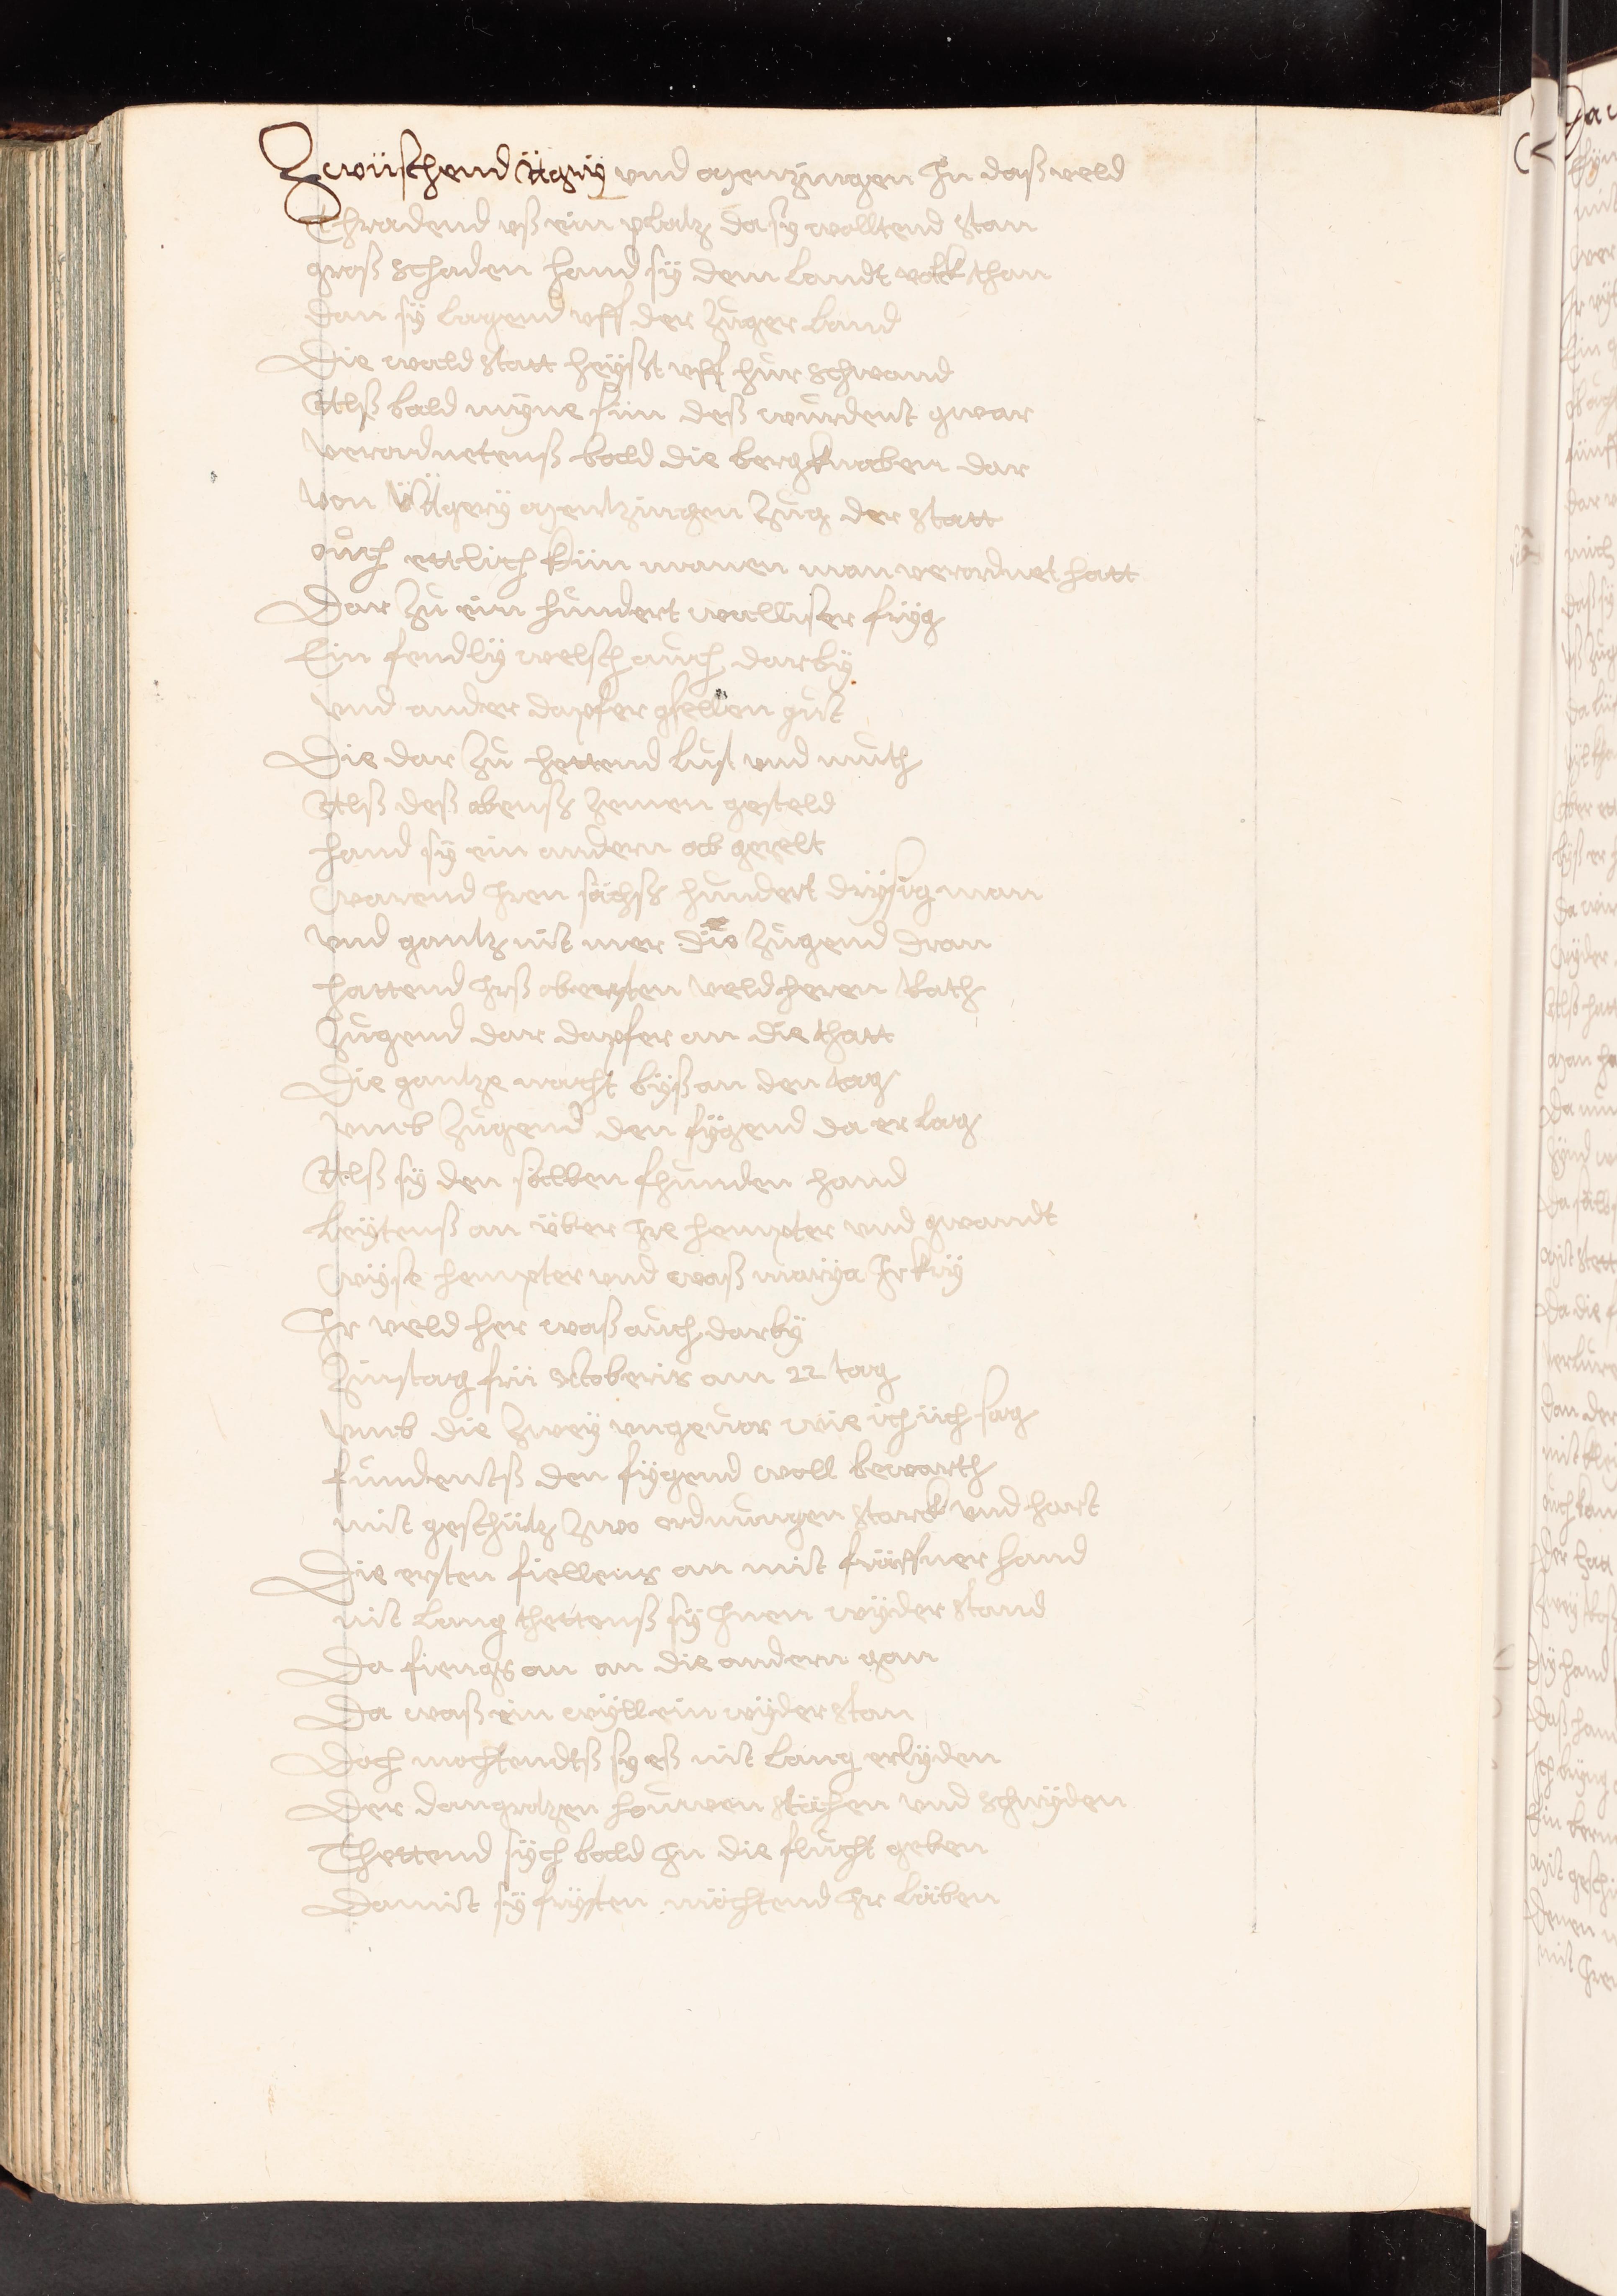 Zwüschend Ägrÿ vnd menzingen In daß veld
Thradend vß ein platz da sy wolltend stan
groß schaden hand sÿ dem landt volck than
dan sÿ lagend vff der Zuger land
Die wald statt heÿßt vff hur schwand
Alß bald mÿne sün deß wurdent gwar
verordnetenß bald die bergknaben dar
von Ägerÿ mentzingen Zug der statt
ouch ettlich kün manen man verordnet hatt
Dar Zu ein hundert walliser frÿg
Ein fendlÿ welsch auch darbÿ
vnd ander dapfer gsellen gut
Die dar Zu hettend lust vnd muth
Alß deß abenß zemen gesteld
hand sÿ ein andern ab gezelt
warend Iren sächß hundert drÿsig man
vnd gantz nit mer die Zugend dran
hattend Irß obersten veld heren Rath
Zugend dar dapfer an die thatt
Die gantze nacht byß an den tag
vmb Zugend den fÿgend da er lag
Alß sÿ den sällben fhunden hand
leÿtenß an über Ire hempter vnd gwandt
wÿse hempter vnd waß marÿa Ir krÿ
Ir veld her waß auch darbÿ
Zinstag früi octobris am 22 tag
vmb die Zweÿ vngeuor wie ich üch sag
fundentß den fÿgend woll bewarth
mit geschütz Zwo ordnungen starck vnd hart
Die ersten fiellens an mit fräffner hand
nit lang thettenß sÿ Inen wÿder stand
Da fiengs an an die andern gan
Da waß ein wÿll ein wÿder stan
Doch mochtendtß sy eß nit lang erlÿden
Der houwen stächen vnd schnÿden
Thettend sÿch bald In die flucht geben
Damit sÿ frÿsten möchtend Ir läben